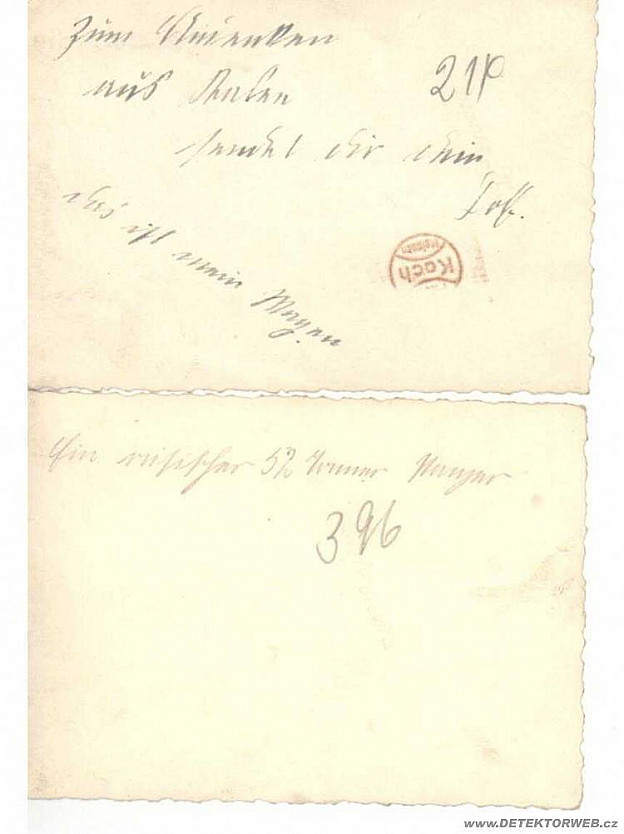 Zum Andenken
aus Polen
21P
sendet dir dein
Das ist mein Wagen
Koch
Ein russischer 52 Tonner Panzer
396
www.DETEKTORWEB.cz